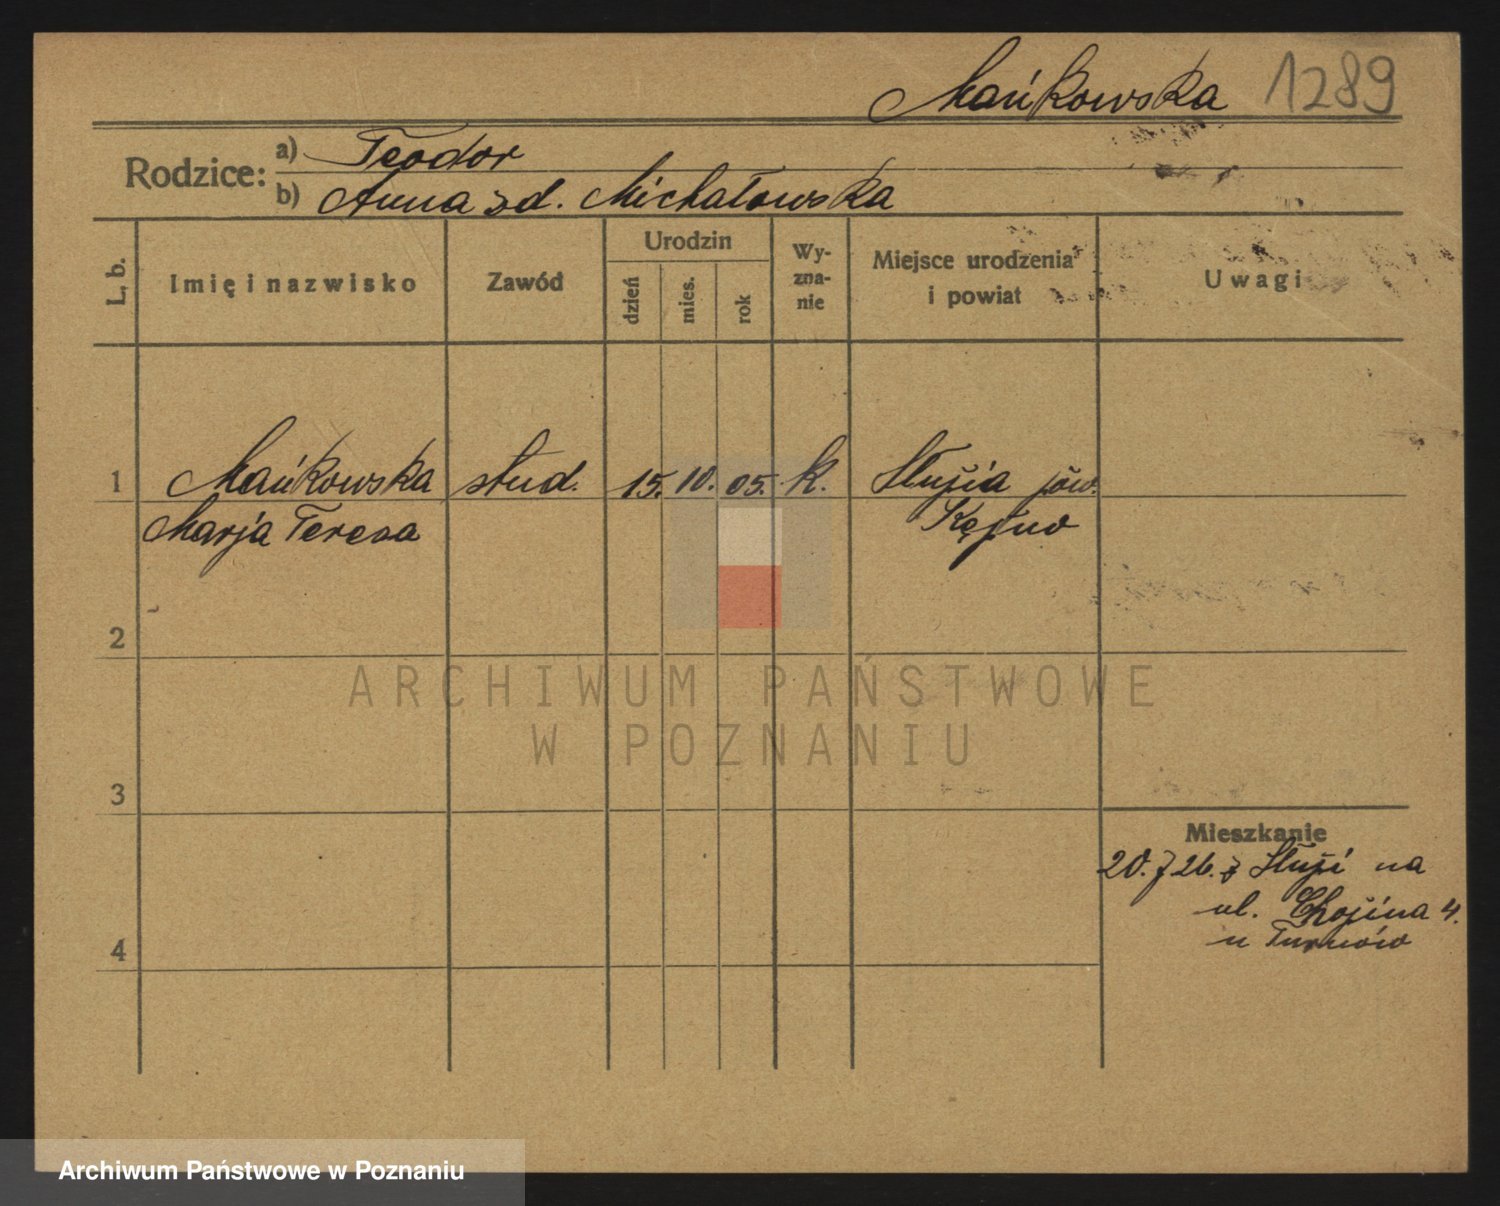 Mańkowska 1289
Rodzice: a) Teodor
b) Anna zd. Michałowska
L. b.
Imię i nazwisko
Zawód
Urodzin
dzień
mies.
rok
Wy-
zna-
nie
Miejsce urodzenia
i powiat
Uwagi
1 Mańkowska stud. 15. 10. 05. k. Słupia pow.
Marja Teresa Kępno
2
ARCHIWUM PAŃSTWOWE
W POZNANIU
3
Mieszkanie
20. 7 26. z Słupi na
ul. 4.
u
4
Archiwum Państwowe w Poznaniu